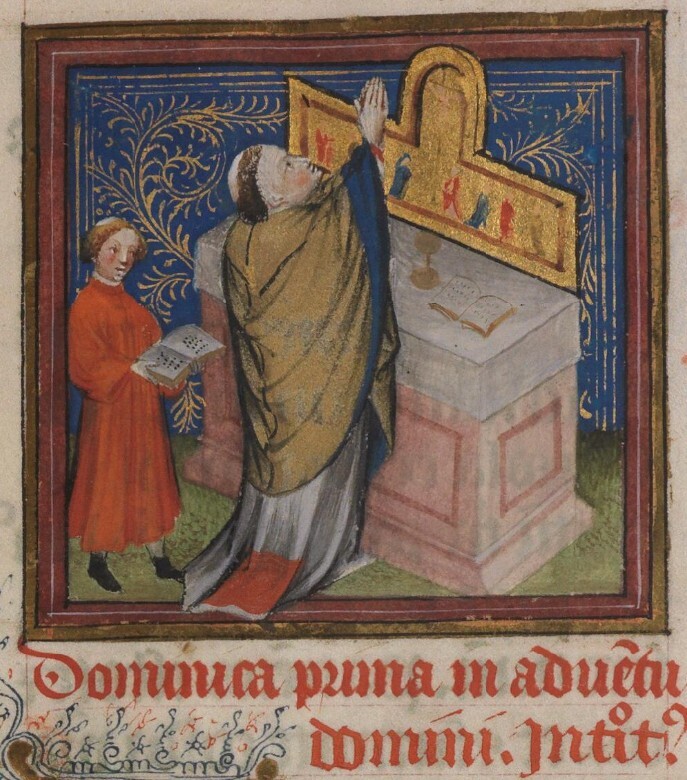 Dominica prima in aduẽtu
domini. Intͦit᷒